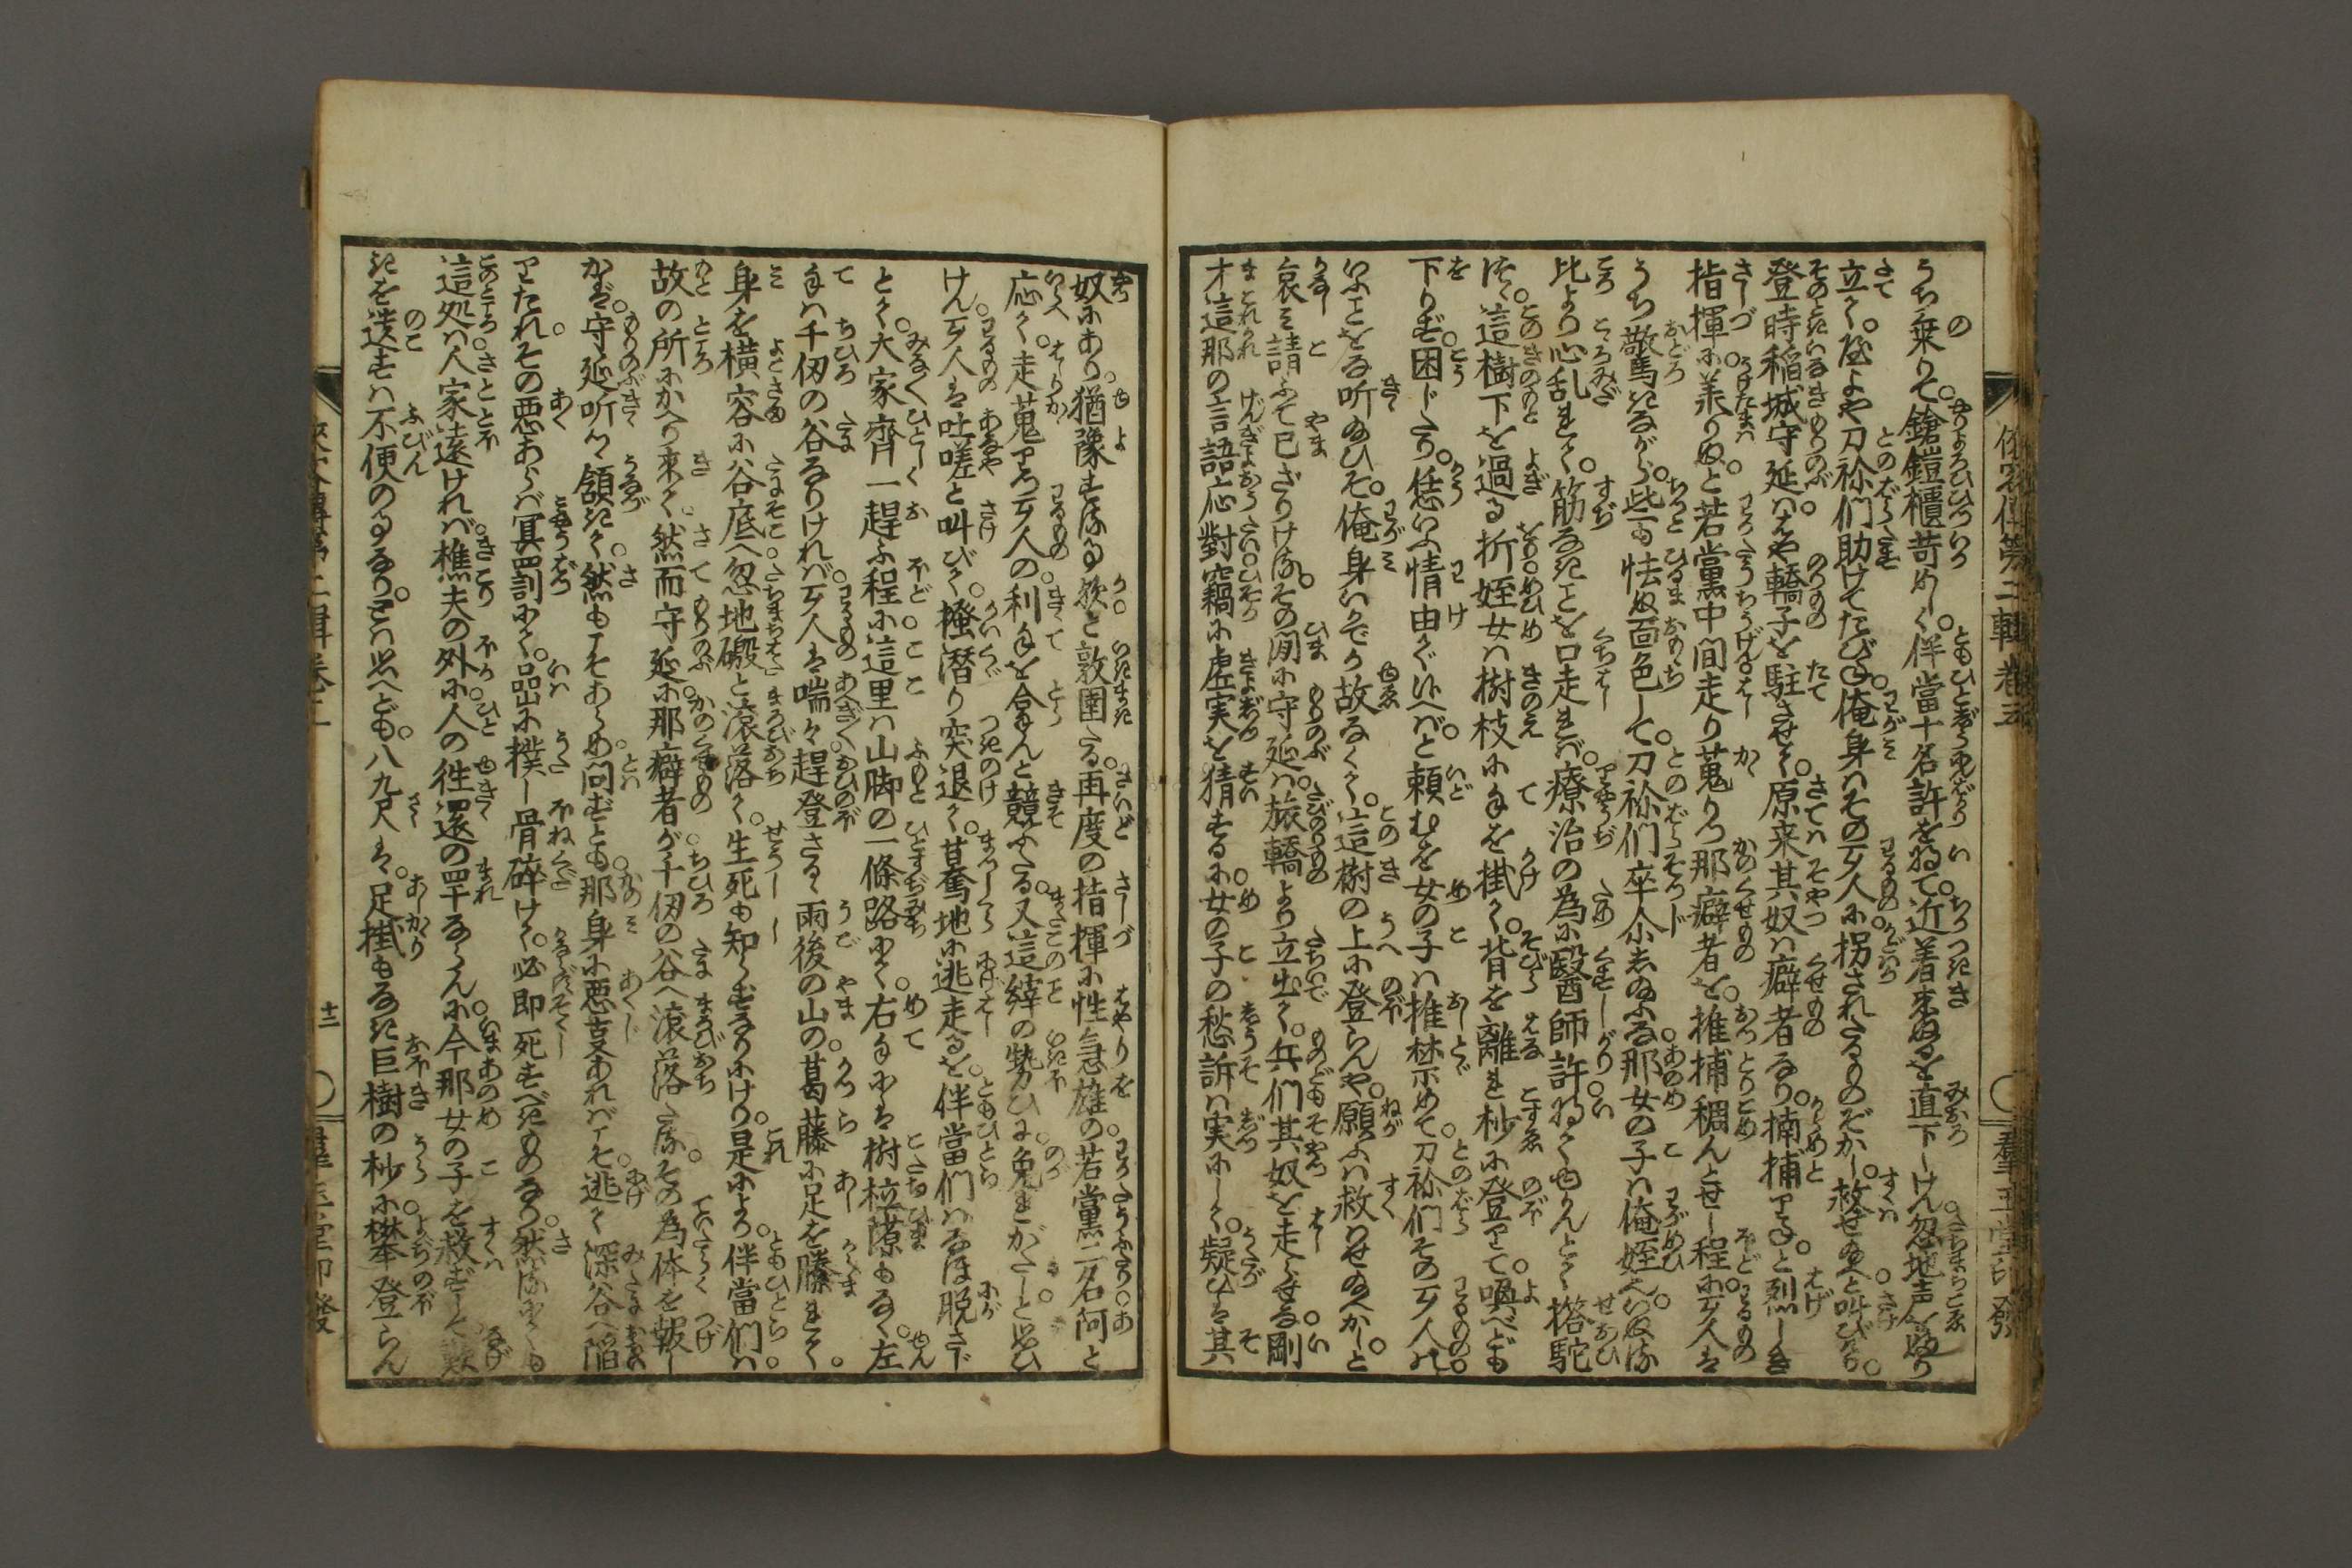 うち乗りて。鎗鎧櫃苛めしく。伴當十名許を将て。近着来ぬるを直下しけん。忽地声をふり
立て。喃よや刀祢們助けてたびね。俺身はその歹人に拐されたるものぞかし。救せ給へと叫びけり。
登時稲城守延は。はや轎子を駐させて。原来其奴は癖者なり。搦捕りね。と烈しき
指揮に。美りぬ。と若黨中間走り蒐りつ。那癖者を。推捕稠んとせし程に。歹人は
うち驚きながら。些も怯ぬ面色して。刀祢們卒尓し給ふな。那女の子は俺姪
比より心乱れて。筋なきことを口走れば。療治の為に醫師許将てゆかんとて。搭駝
つゝ。這樹下を過る折。姪女は樹枝に手を掛て。背を離れ杪に登りて。喚べども
下りず。困じたり。恁いふ情由で候へば。と頼むを女の子は推禁めて。刀祢們その歹人の
いふことをな听給ひそ。俺身いかでか故なくて。這樹の上に登らんや。願ふは救はせ給へかし。と
哀み請ふて已ざりける。その間に守延は。旅轎より立出て。兵們其奴を走らすな。剛
才這那の言語応對。竊に虚実を猜するに。女の子の愁訴は実にして。疑ひは其
奴にあり。猶豫する歟と敦圉たる。再度の指揮に性急雄の若黨二名阿と
応て。走蒐りつゝ歹人の。利手を拿んと競ふたる。又這緯の勢ひに。免れがたしと思ひ
けん。歹人は吐嗟と叫びて。掻潜り突退て。驀地に逃走るを。伴當們はなほ脱さじ
とて。大家齊一趕ふ程に。這里は山脚の一條路にて。右手には樹柆隙もなく。左
手は千仭の谷なりければ。歹人は喘々趕登さるゝ。雨後の山の。葛藤に足を縢れて。
身を横容に谷底へ。忽地磤と滾落て。生死も知らずなりにけり。是により。伴當們は
故の所にかへり来て。然而守延に。那癖者が千仭の谷へ滾落たる。その為体を報し
かば。守延听つゝ頷きて。然もこそあらめ。問ずとも。那身に悪事あればこそ逃て深谷へ陥
りたれ。その悪あらば冥罰にて。品に撲し骨碎けて。必即死すべきものなり。然るにても
這処は人家遠ければ。樵夫の外に人の徃還の罕ならんに。今那女の子を救ずして
きを遺すは不便のことなり。とは思へども。八九尺は。足掛もなき巨樹の杪に。攀登らん
侠客伝第二輯巻五
羣玉堂印發
十二